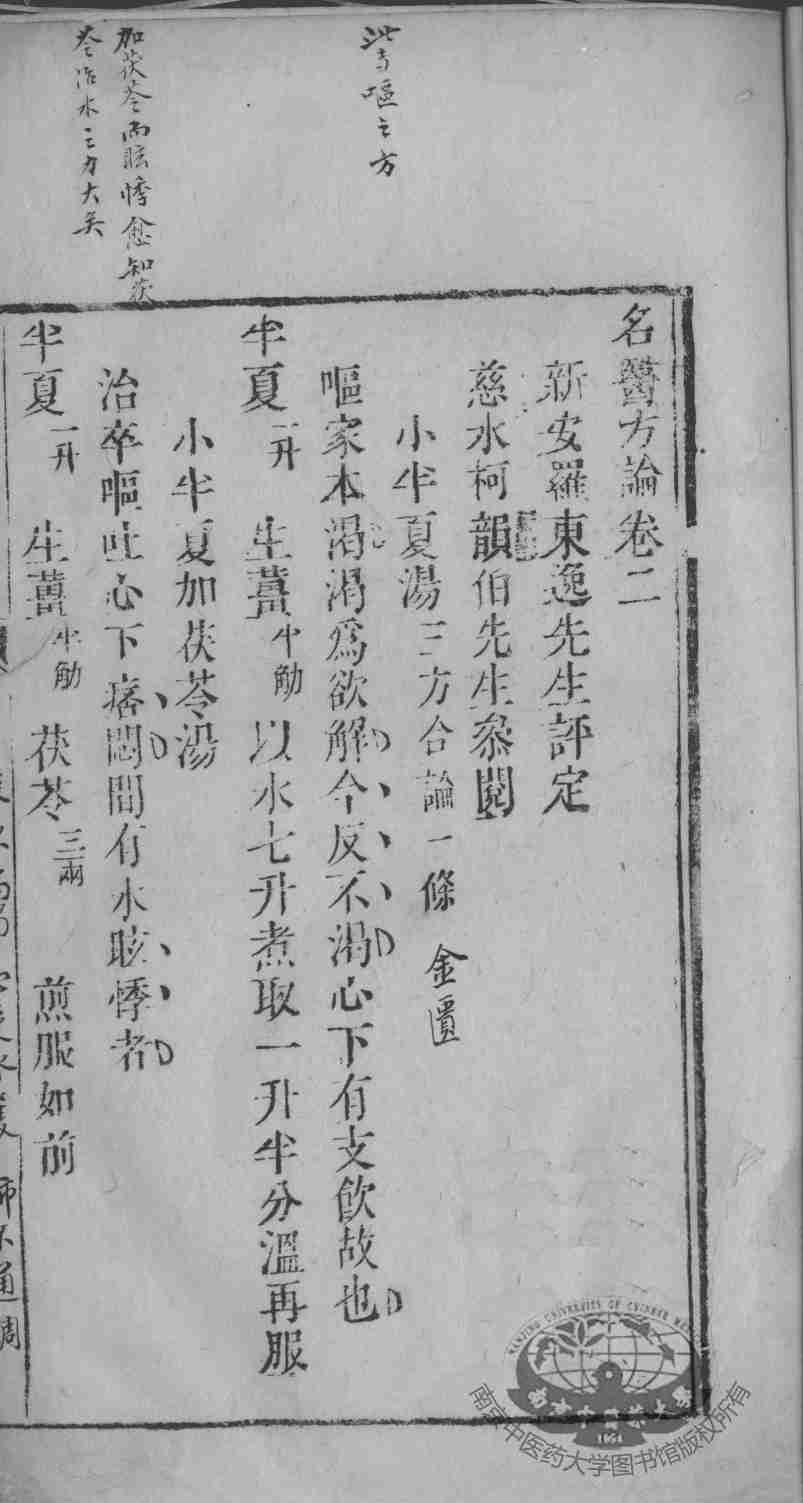 名醫方論卷二
新安羅東逸先生評定
慈水柯韻伯先生叅閱
小半夏湯 三方合論一條 金匱
嘔家本渴渴爲欲解今反不渴心下有支飲故也
半夏一升 生薑半觔 以水七升煮取一升半分溫再服
小半夏加茯苓湯
治卒嘔吐心下痞悶間有水眩悸者
半夏一升 生薑半觔 茯苓三兩 煎服如前
嘔之方
加茯苓而眩悸愈知茯
苓治水之力大矣
師不通調
南京中医药大学图书馆版权所有
NANJING UNIVERSITY OF CHINESE
1954